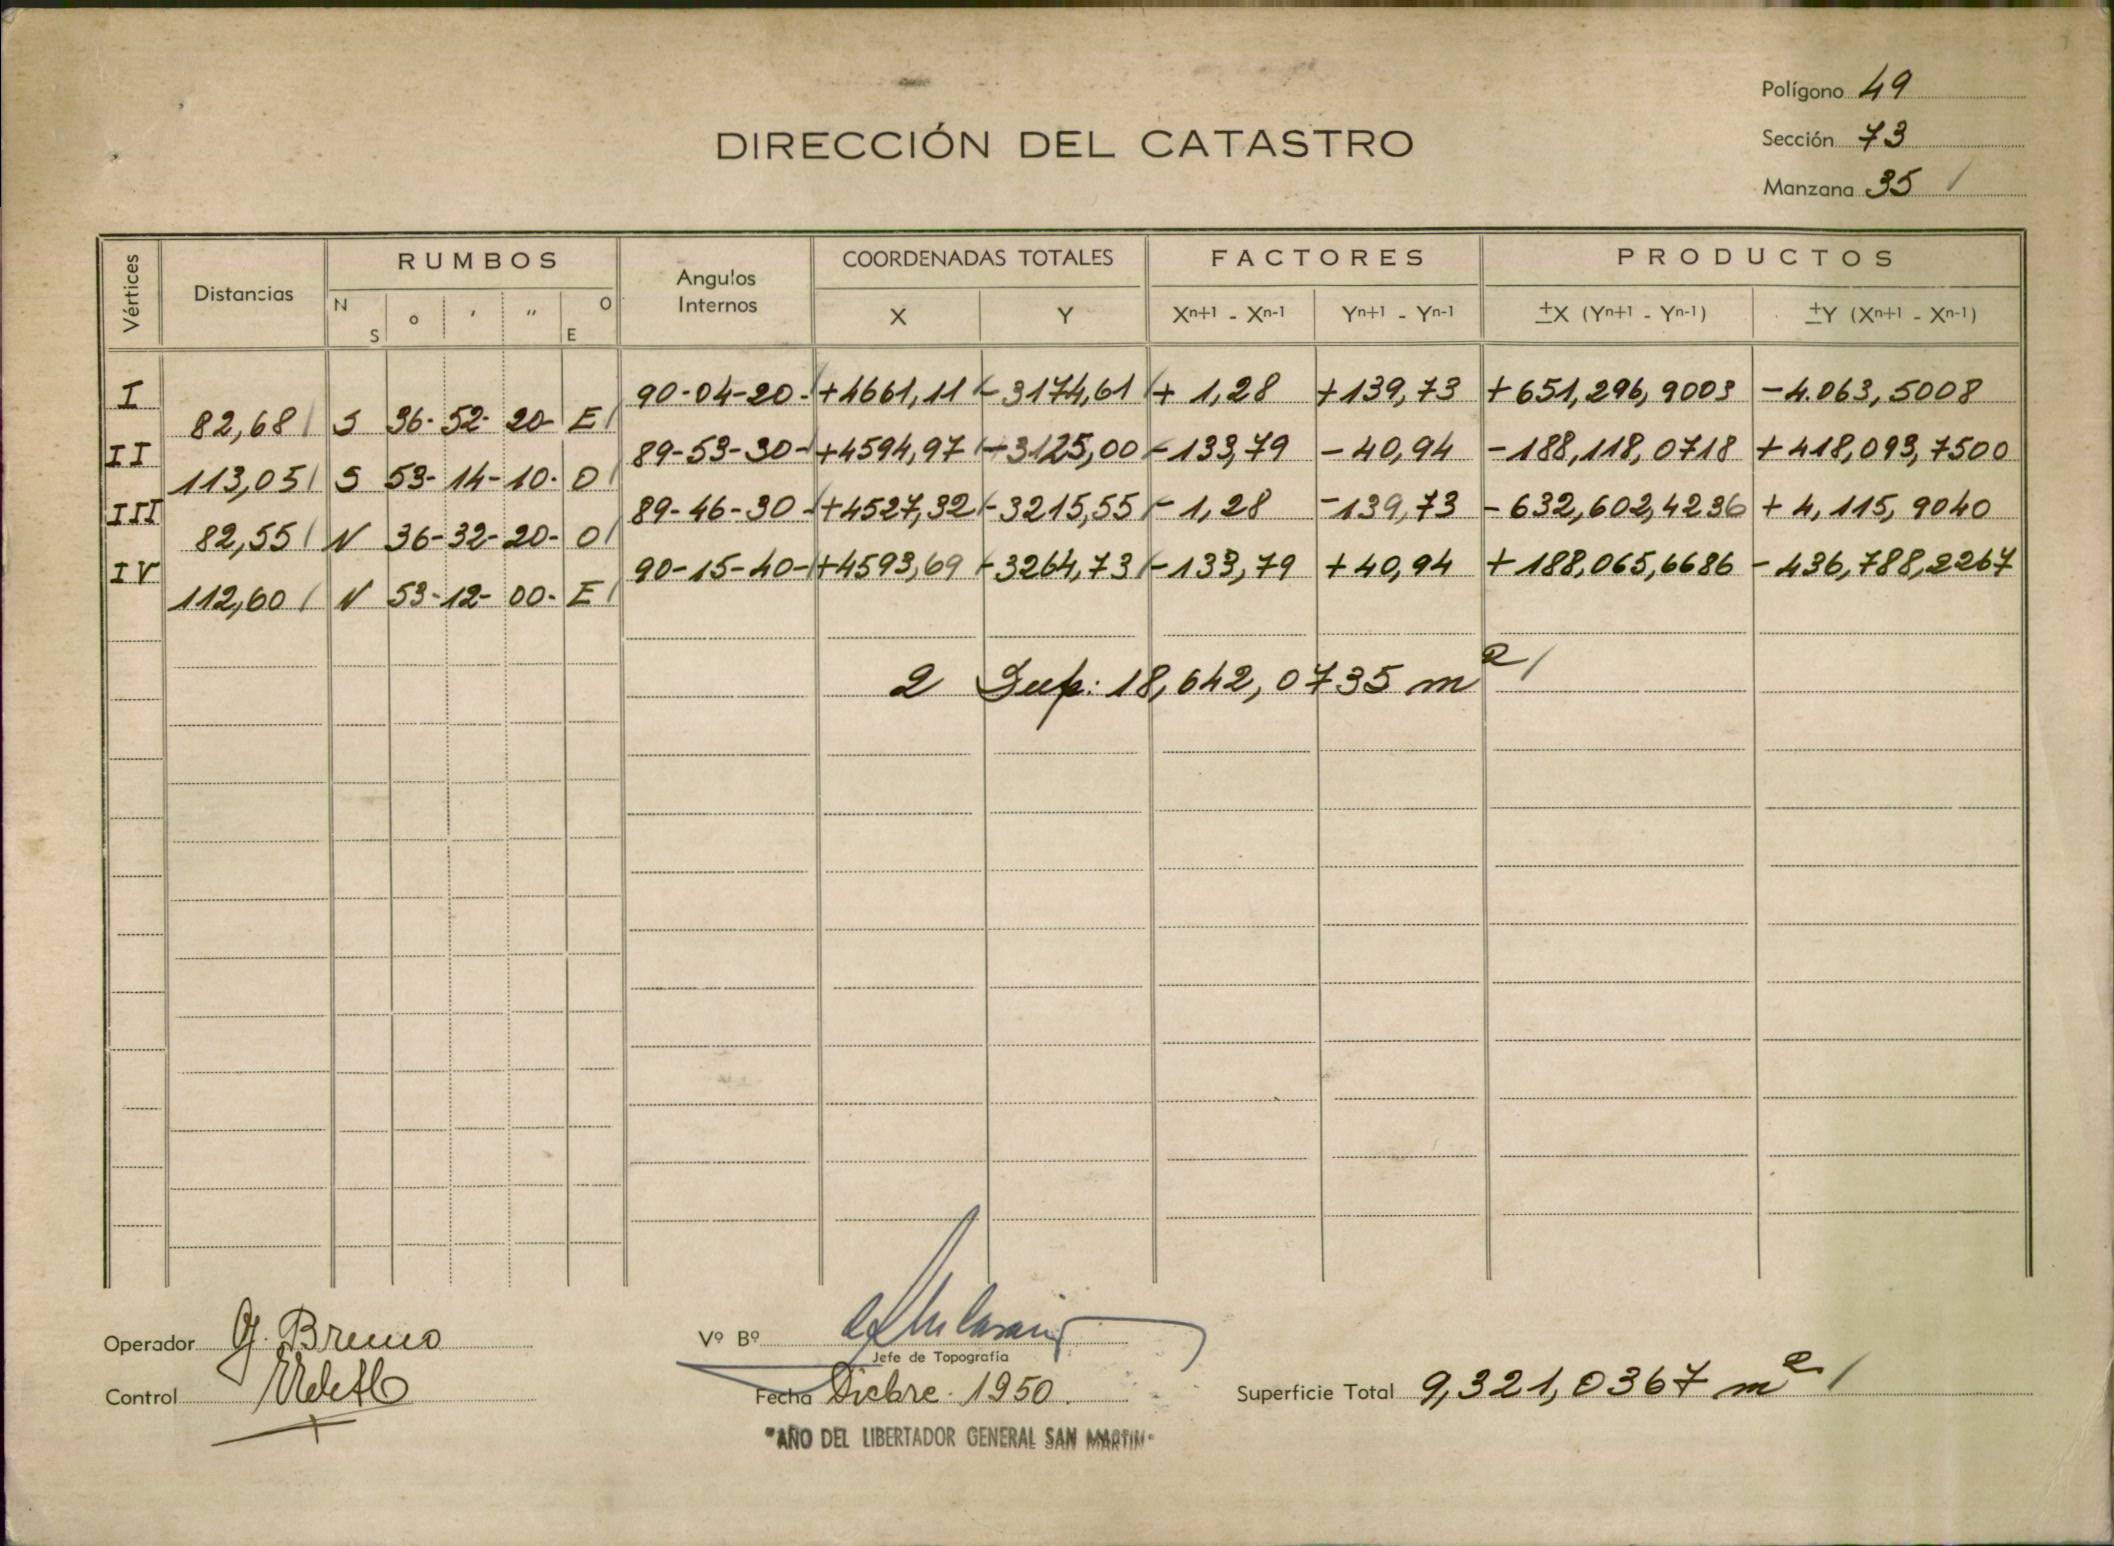 Polígono 49
Sección 73
Manzana 35 /
DIRECCIÓN DEL CATASTRO
Vértices Distancias RUMBOS Angulos Internos COORDENADAS TOTALES FACTORES PRODUCTOS
N S o ' " O E X Y Xn+1 - Xn-1 Yn+1 - Yn-1 ±X (Yn+1 - Yn-1) ±Y (Xn+1 - Xn-1)
I 90-04-20- +4661,11 -3174,61 + 1,28 +139,73 +651,296,9003 -4.063,5008
82,68 / S 36- 52- 20- E /
II 89-53-30- +4594,97 -3125,00 -133,79 -40,94 -188,118,0718 +418,093,7500
113,05 / S 53- 14- 10- O /
III 89-46-30 +4527,32 -3215,55 -1,28 -139,73 -632,602,4236 + 4,115,9040
82,55 / N 36- 32- 20- O /
IV 90-15-40- +4593,69 -3264,73 -133,79 +40,94 +188,065,6686 -436,788,2267
112,60 / N 53- 12- 00- E /
2 Sup: 18,642,0735 m² /
Operador G. Bruno
Vº Bº
Jefe de Topografía
Control
Fecha Dicbre. 1950.
Superficie Total 9,321,0367 m² /
"AÑO DEL LIBERTADOR GENERAL SAN MARTIN"